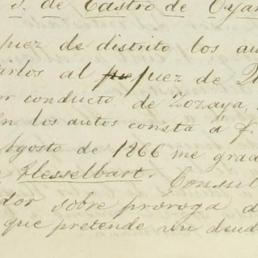 J. de Castro de Oya
juez de distrito los au
arlos al juez de
or conducto de Zozaya,
en los autos consta a f.
Agosto de 1866 me grad
Hesselbart. Consul
dor sobre proroga d
que pretende un deud